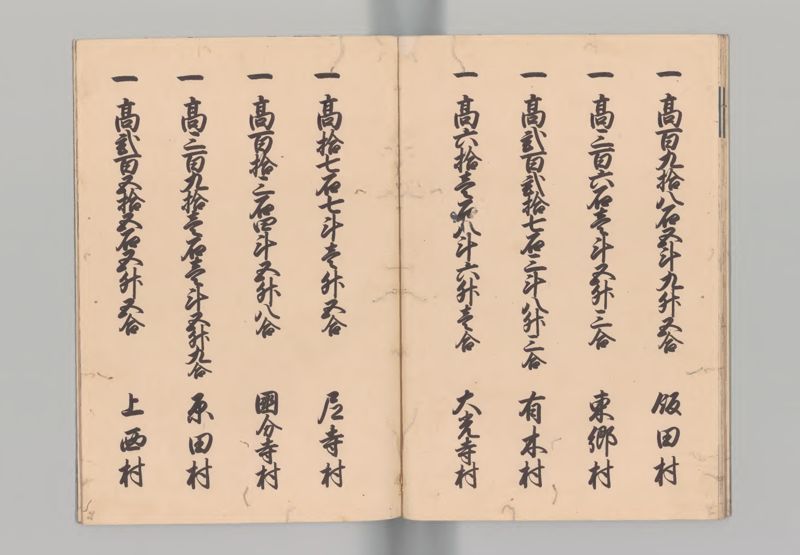 一 高百九拾八石五斗九升五合 飯田村
一 高三百六石壱斗五升三合 東郷村
一 高弐百弐拾七石三斗八升三合 有木村
一 高六拾壱石八斗六升壱合 大光寺村
一 高拾七石七斗壱升五合 尼寺村
一 高百拾三石四斗五升八合 國分寺村
一 高三百九拾壱石壱斗五升九合 原田村
一 高弐百五拾五石五升五合 上西村